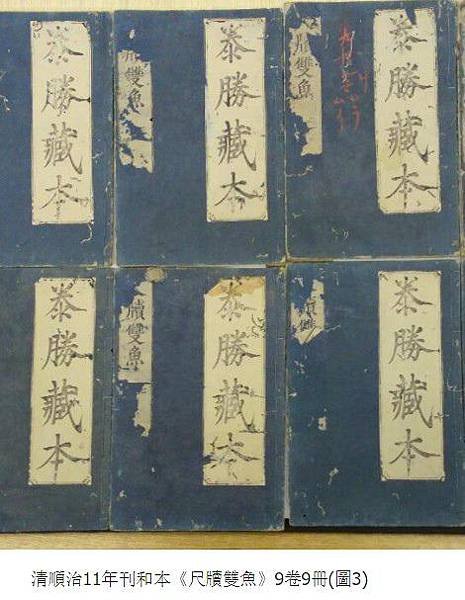 泰勝藏本
牘雙魚
泰勝藏本
牘雙魚
泰勝藏本
泰勝藏本
牘雙魚
泰勝藏本
牘雙
泰勝藏本
清順治11年刊和本《尺牘雙魚》9卷9冊(圖3)